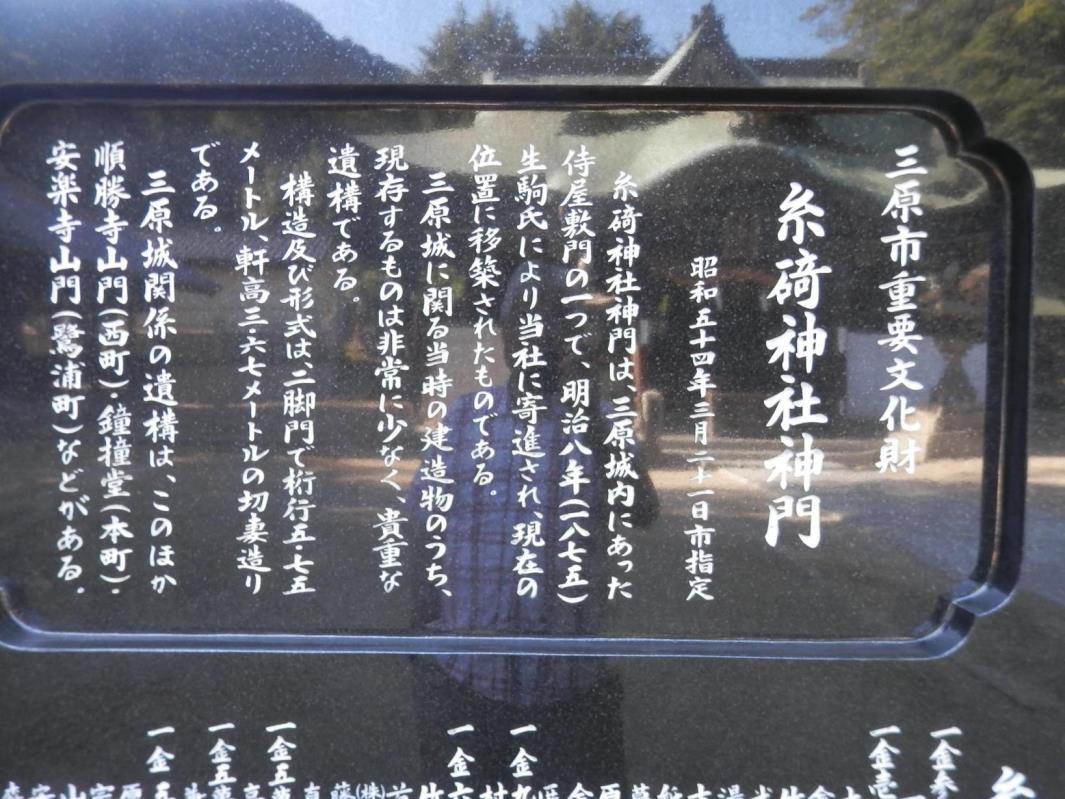 三原市重要文化財
糸碕神社神門
昭和五十四年三月二十一日市指定
糸碕神社神門は、三原城内にあった
侍屋敷門の一つで、明治八年(一八七五)
生駒氏により当社に寄進され、現在の
位置に移築されたものである。
三原城に関る当時の建造物のうち、
現存するものは非常に少なく、貴重な
遺構である。
構造及び形式は、二脚門で桁行五・七五
メートル、軒高三・六七メートルの切妻造り
である。
三原城関係の遺構は、このほか
順勝寺山門(西町)・鐘撞堂(本町)・
安楽寺山門(鷺浦町)などがある.
糸
一金参
一金壱
一金九
一金六
一金五萬
一金五萬
一金五